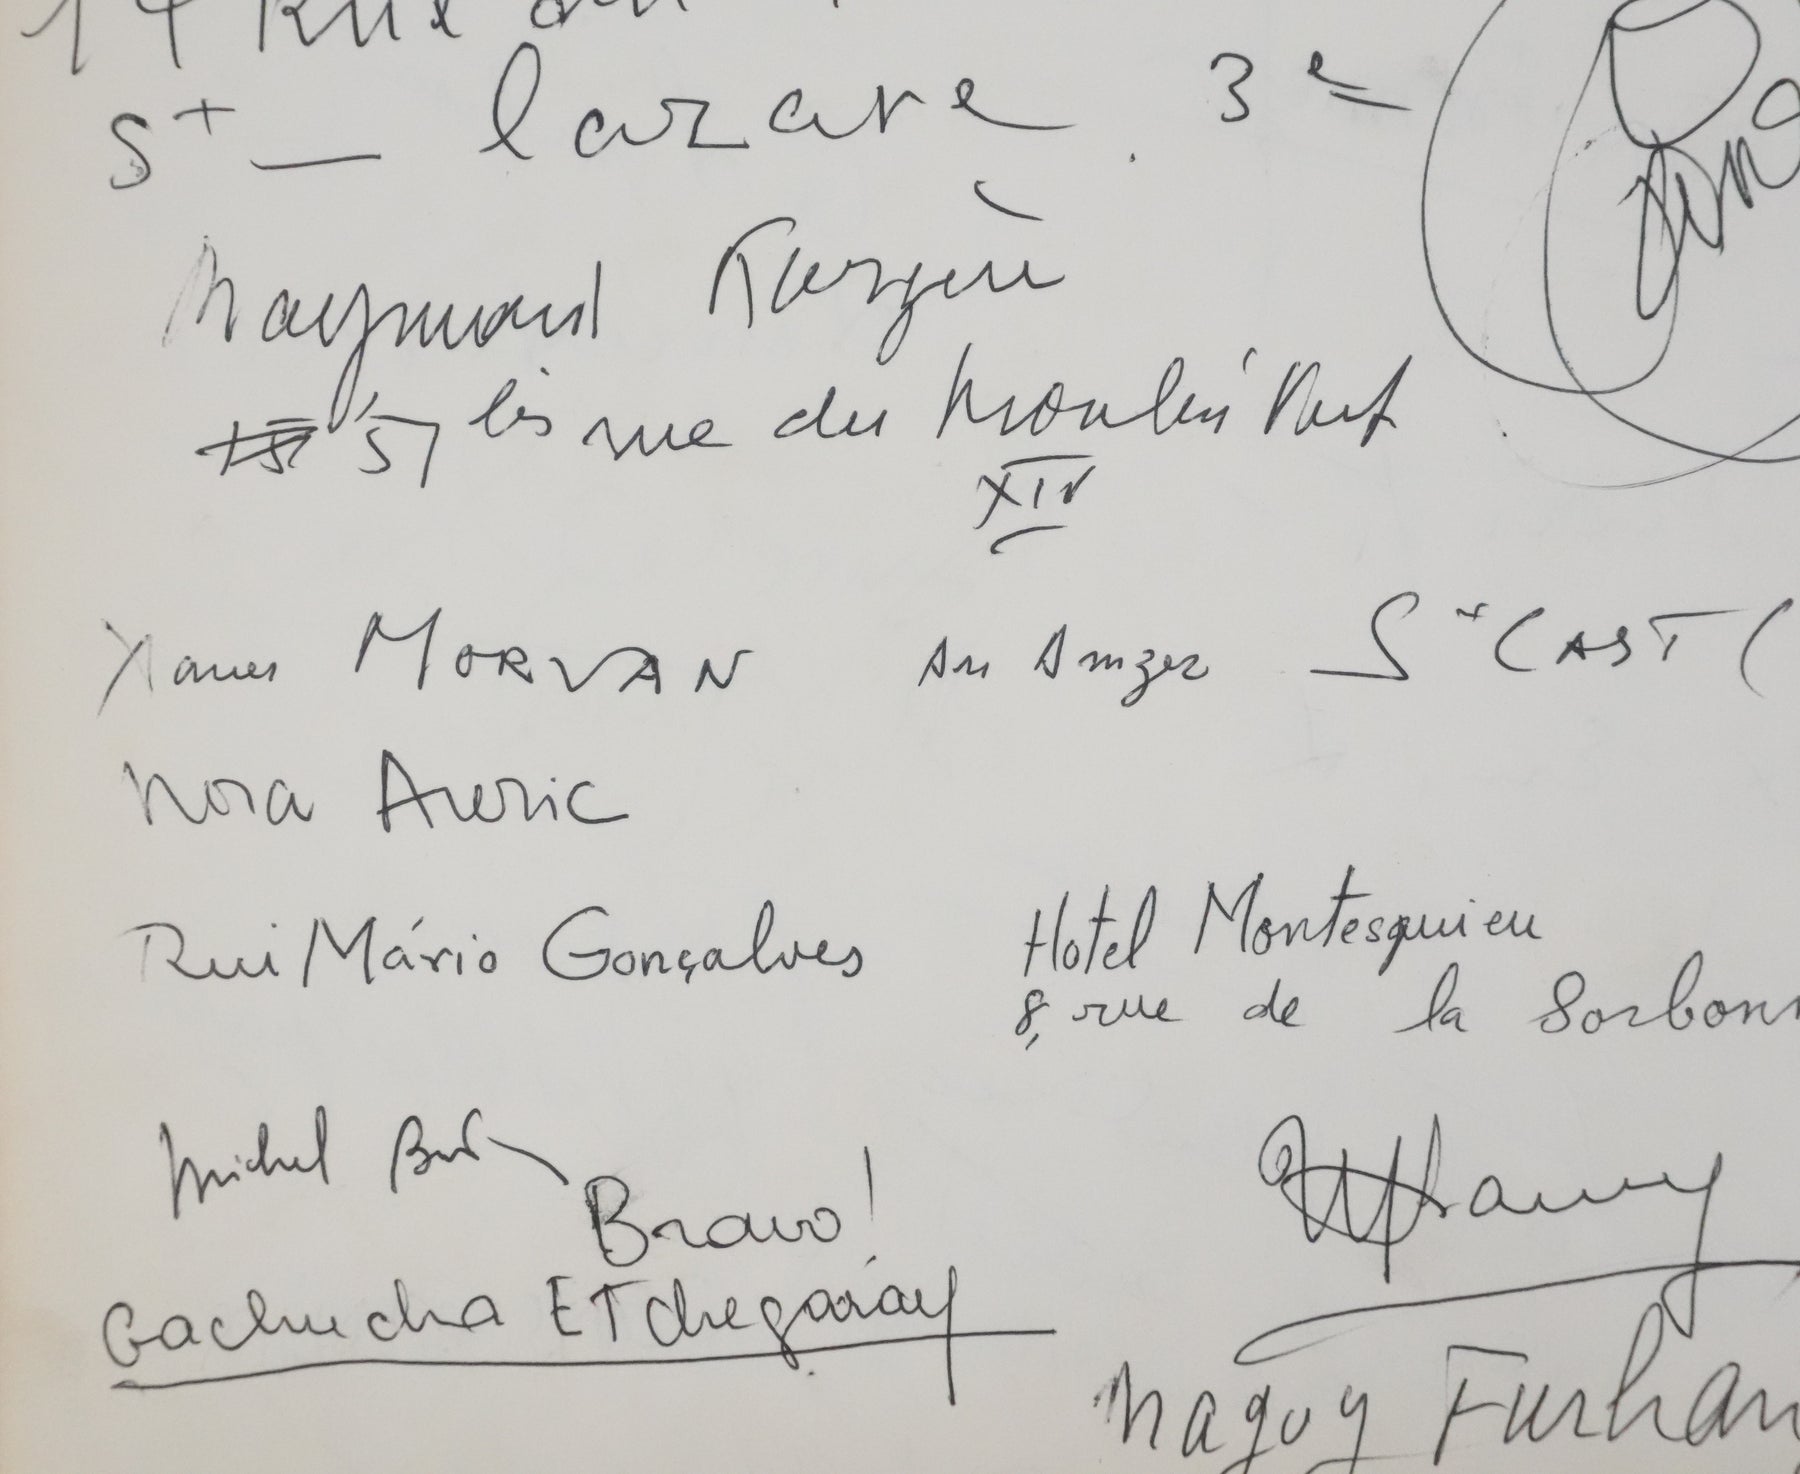 14 Rue du
St — lazare . 3e
Raymond
57 bis rue du Moulin Vert
XIV
MORVAN St CAST
Nora Auric
Rui Mário Gonçalves
Hotel Montesquieu
8, rue de la Sorbonn
Michel
Bravo!
Cachucha ETchegaray
Maguy Furhan